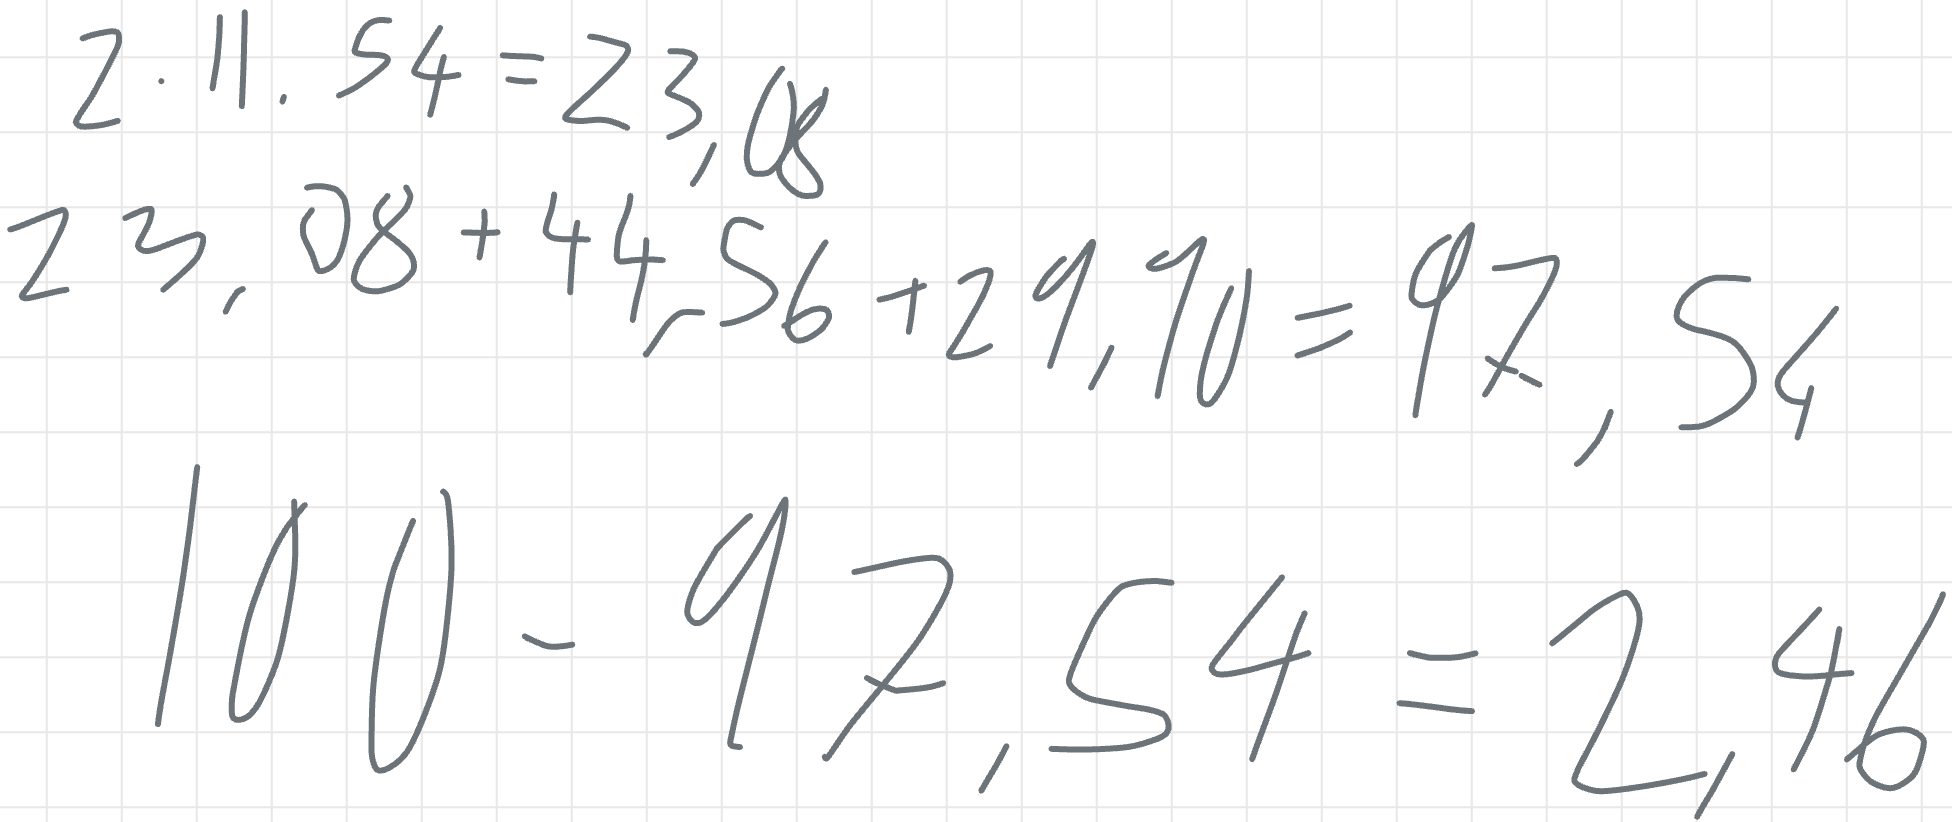 2 · 11. 54 = 23,08
23,08 + 44,56 + 29,90 = 97,54
100 - 97,54 = 2,46